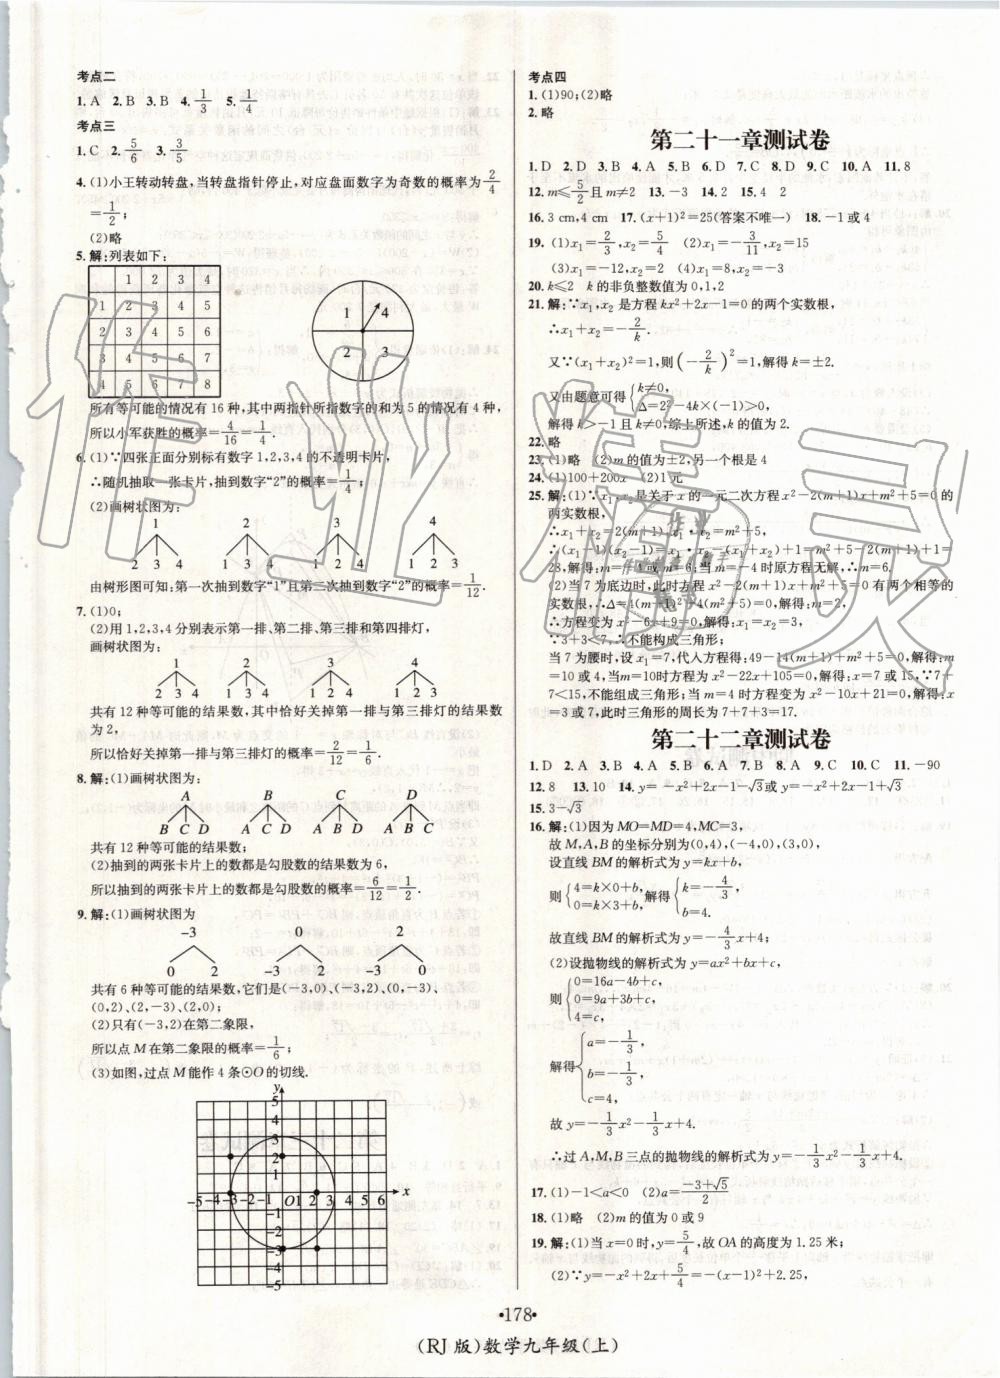 考点二
1. A  2. B  3. B  4. 1/3  5. 1/4
考点三
1. C  2. 5/6  3. 3/5
4. (1)小王转动转盘,当转盘指针停止,对应盘面数字为奇数的概率为2/4
=1/2;
(2)略
5. 解:列表如下:
1 2 3 4
1 2 3 4 5
2 3 4 5 6
3 4 5 6 7
4 5 6 7 8
1 4
2 3
所有等可能的情况有 16 种,其中两指针所指数字的和为 5 的情况有 4 种,
所以小军获胜的概率=4/16=1/4.
6. (1)∵四张正面分别标有数字 1,2,3,4 的不透明卡片,
∴随机抽取一张卡片,抽到数字“2”的概率=1/4;
(2)画树状图为:
1 2 3 4
由树形图可知:第一次抽到数字“1”且第二次抽到数字“2”的概率=1/12.
7. (1)0;
(2)用 1,2,3,4 分别表示第一排、第二排、第三排和第四排灯,
画树状图为:
1 2 3 4
2 3 4  1 3 4  1 2 4  1 2 3
共有 12 种等可能的结果数,其中恰好关掉第一排与第三排灯的结果数
为 2,
所以恰好关掉第一排与第三排灯的概率=2/12=1/6.
8. 解:(1)画树状图为:
A B C D
B C D  A C D  A B D  A B C
共有 12 种等可能的结果数;
(2)抽到的两张卡片上的数都是勾股数的结果数为 6,
所以抽到的两张卡片上的数都是勾股数的概率=6/12=1/2.
9. 解:(1)画树状图为
-3 0 2
0 2  -3 2  -3 0
共有 6 种等可能的结果数,它们是(-3,0)、(-3,2)、(0,-3)、
(0,2)、(2,-3)、(2,0);
(2)只有(-3,2)在第二象限,
所以点 M 在第二象限的概率=1/6;
(3)如图,过点 M 能作 4 条⊙O 的切线.
y
5
4
3
2
1
-5 -4 -3 -2 -1 O 1 2 3 4 5 6 x
-1
-2
-3
-4
-5
考点四
1. (1)90;(2)略
2. 略
第二十一章测试卷
1. D  2. D  3. B  4. A  5. B  6. D  7. C  8. D  9. C  10. A  11. 8
12. m≤5/2且 m≠2  13. -3  14. 2  15. 4  2
16. 3 cm,4 cm  17. (x+1)²=25(答案不唯一)  18. -1 或 4
19. (1)x₁=2/3,x₂=5/4  (2)x₁=-3/11,x₂=15
(3)x₁=-12,x₂=2  (4)x₁=8,x₂=-3
20. k≤2  k 的非负整数值为 0,1,2
21. 解:∵x₁,x₂ 是方程 kx²+2x-1=0 的两个实数根,
∴x₁+x₂=-2/k.
又∵(x₁+x₂)²=1,则(-2/k)²=1,解得 k=±2.
又由题意可得{k≠0, Δ=2²-4k×(-1)>0,
解得 k>-1 且 k≠0,综上所述,k 的值为 2.
22. 略
23. (1)略  (2)m 的值为±2,另一个根是 4
24. (1)100+200x  (2)1元
25. 解:(1)∵x₁,x₂ 是关于 x 的一元二次方程 x²-2(m+1)x+m²+5=0 的
两实数根,
∴x₁+x₂=2(m+1),x₁·x₂=m²+5,
∴(x₁-1)(x₂-1)=x₁·x₂-(x₁+x₂)+1=m²+5-2(m+1)+1=
28,解得:m=-4 或 m=6;当 m=-4 时原方程无解,∴m=6.
(2)当 7 为底边时,此时方程 x²-2(m+1)x+m²+5=0 有两个相等的
实数根,∴Δ=4(m+1)²-4(m²+5)=0,解得:m=2,
∴方程变为 x²-6x+9=0,解得:x₁=x₂=3,
∵3+3<7,∴不能构成三角形;
当 7 为腰时,设 x₁=7,代入方程得:49-14(m+1)+m²+5=0,解得:m
=10 或 4,当 m=10时方程变为 x²-22x+105=0,解得:x=7 或 15,∵7+
7<15,不能组成三角形;当 m=4 时方程变为 x²-10x+21=0,解得:x
=3 或 7,此时三角形的周长为 7+7+3=17.
第二十二章测试卷
1. D  2. A  3. B  4. A  5. B  6. A  7. B  8. A  9. C  10. C  11. -90
12. 8  13. 10  14. y=-x²+2x-1-√3或 y=-x²+2x-1+√3
15. 3-√3
16. 解:(1)因为 MO=MD=4,MC=3,
故 M,A,B 的坐标分别为(0,4),(-4,0),(3,0),
设直线 BM 的解析式为 y=kx+b,
则{4=k×0+b, 0=k×3+b,解得{k=-4/3, b=4.
故直线 BM 的解析式为 y=-4/3x+4;
(2)设抛物线的解析式为 y=ax²+bx+c,
则{0=16a-4b+c, 0=9a+3b+c, 4=c,
解得{a=-1/3, b=-1/3, c=4,
故 y=-1/3x²-1/3x+4,
∴过 A,M,B 三点的抛物线的解析式为 y=-1/3x²-1/3x+4.
17. (1)-1<a<0  (2)a=(-3+√5)/2
18. (1)略  (2)m 的值为 0 或 9
19. 解:(1)当 x=0时,y=5/4,故 OA 的高度为 1.25 米;
(2)∵y=-x²+2x+5/4=-(x-1)²+2.25,
•178•
(RJ 版)数学九年级(上)
作业精灵